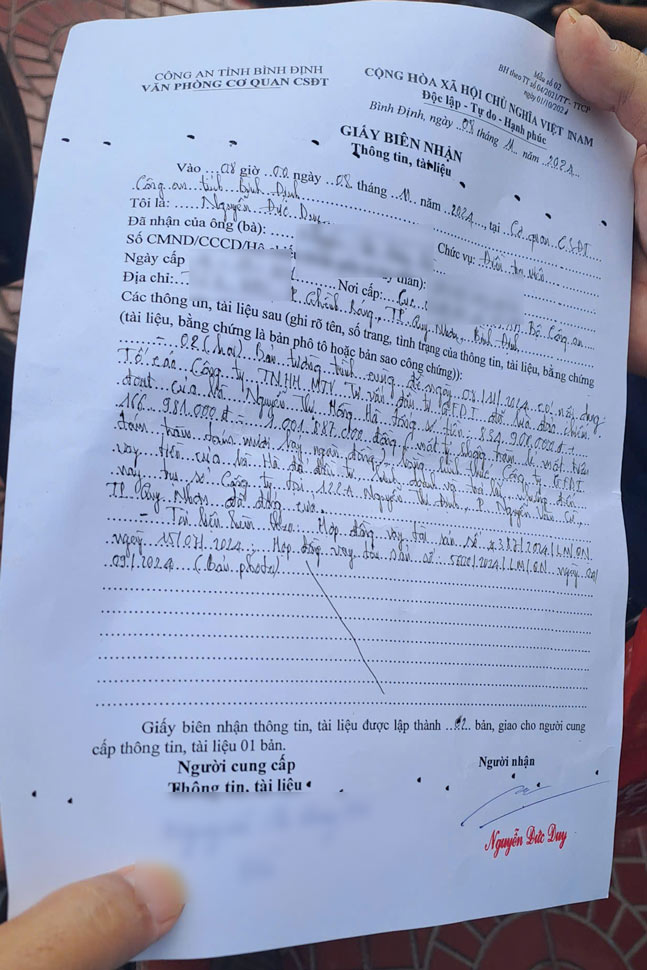 CÔNG AN TỈNH BÌNH ĐỊNH
VĂN PHÒNG CƠ QUAN CSĐT
Mẫu số 02
BH theo TT số 04/2021/TT-TTCP
ngày 01/10/2021
CỘNG HÒA XÃ HỘI CHỦ NGHĨA VIỆT NAM
Độc lập - Tự do - Hạnh phúc
Bình Định, ngày 08 tháng 11 năm 2024
GIẤY BIÊN NHẬN
Thông tin, tài liệu
Vào 08 giờ 00 ngày 08 tháng 11 năm 2024, tại Cơ quan CSĐT
Công an tỉnh Bình Định
Tôi là: Nguyễn Đức Duy Chức vụ: Điều tra viên
Đã nhận của ông (bà):
Số CMND/CCCD/Hộ chiếu thân):
Ngày cấp Nơi cấp: Cục Bộ Công an
Địa chỉ: P. Ghềnh Ráng, TP Quy Nhơn, Bình Định
Các thông tin, tài liệu sau (ghi rõ tên, số trang, tình trạng của thông tin, tài liệu, bằng chứng
(tài liệu, bằng chứng là bản phô tô hoặc bản sao công chứng)):
- 02 (hai) Bản tường trình cùng đề ngày 08/11/2024 có nội dung:
Tố cáo Công ty TNHH MTV Tư vấn đầu tư GFDI đã lừa đảo chiếm
đoạt của bà Nguyễn Thị Hồng Hà tổng số tiền: 834.906.000đ +
166.981.000đ = 1.001.887.000 đồng (một tỷ không trăm lẻ một triệu
tám trăm tám mươi bảy ngàn đồng) bằng hình thức Công ty GFDI
vay tiền của bà Hà để đầu tư kinh doanh và trả lãi nhưng đến
nay trụ sở Công ty tại 122A Nguyễn Thị Định, P. Nguyễn Văn Cừ,
TP Quy Nhơn đã đóng cửa.
- Tài liệu kèm theo: Hợp đồng vay tài sản số 4387/2024/LM/QN
ngày 15/07/2024; Hợp đồng vay tài sản số 5020/2024/LM/QN ngày
09/2024 (Bản photo)
Giấy biên nhận thông tin, tài liệu được lập thành 02 bản, giao cho người cung
cấp thông tin, tài liệu 01 bản.
Người cung cấp
Thông tin, tài liệu
Người nhận
Nguyễn Đức Duy